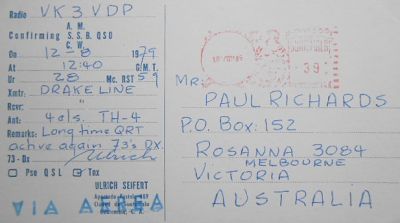 Radio VK3VDP
A. M.
Confirming S. S. B. QSO
C. W.
On 12-8 1979
At 12:40 G.M.T.
Ur 28 Mc. RST 59
Xmtr: DRAKE LINE
Rcvr:
Ant: 4 els. TH-4
Remarks: Long time QRT
active again 73's DX.
73 - Dx Ulrich
Pse QSL Tnx
ULRICH SEIFERT
VIA AEREA
39
Mr:
PAUL RICHARDS
P.O. Box: 152
ROSANNA 3084
MELBOURNE
VICTORIA
AUSTRALIA